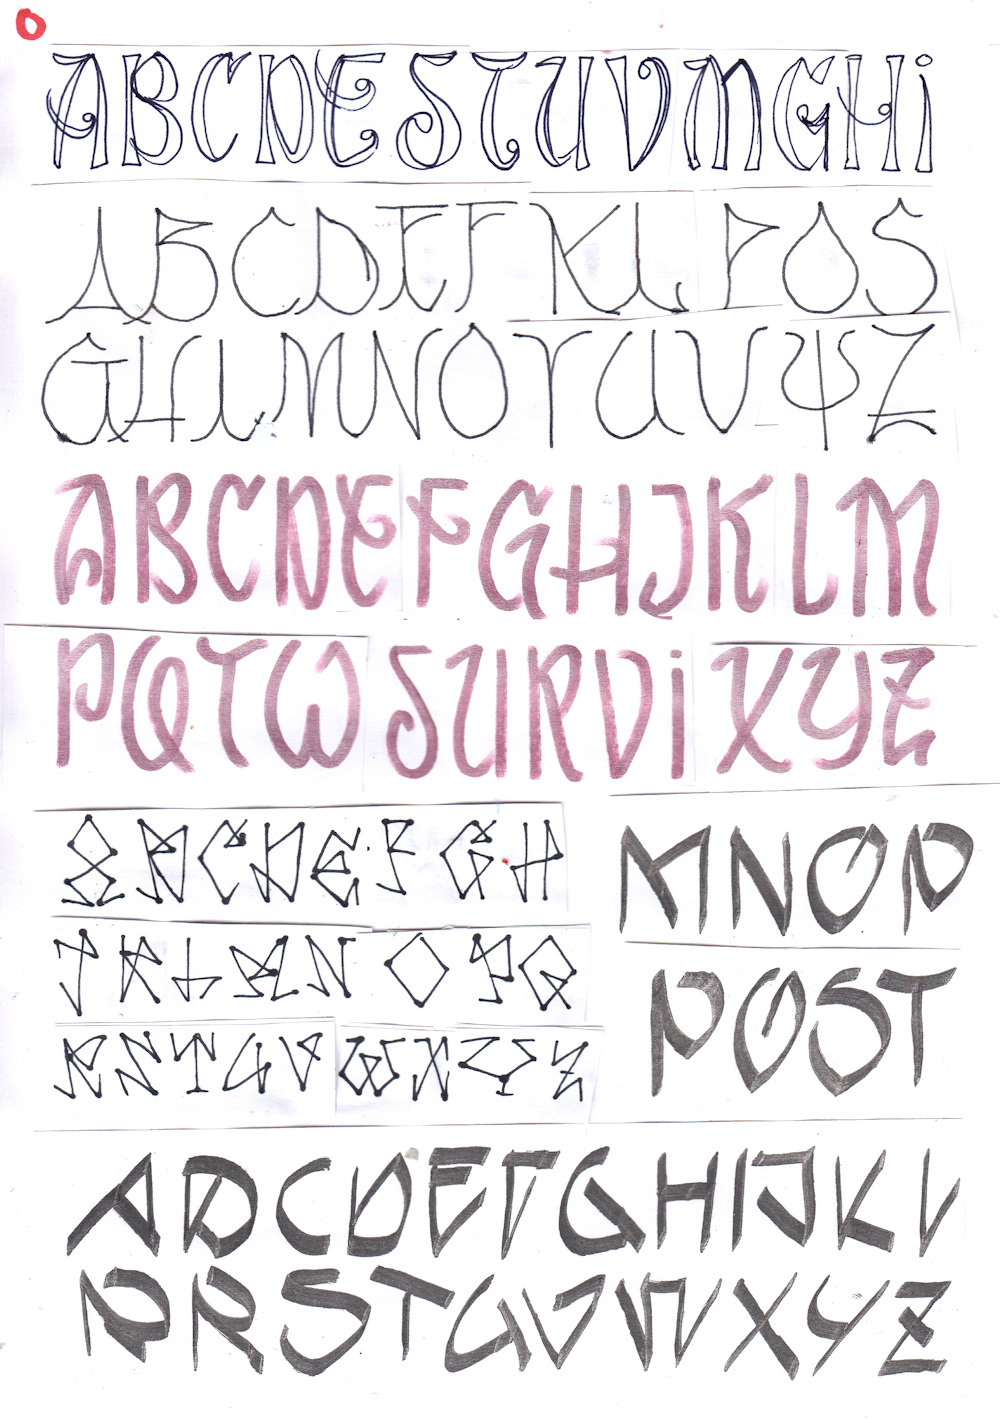 O
ABCDESTUVMGHi
ABCDEFKLPOS
GHLMNOTUVΨZ
ABCDEFGHJKLM
PQTWSURViXYZ
ABCDEFGH
MNOP
JKLMNOPQ
POST
RSTUVWXYZ
ABCDEFGHIJKL
PRSTUVWXYZ